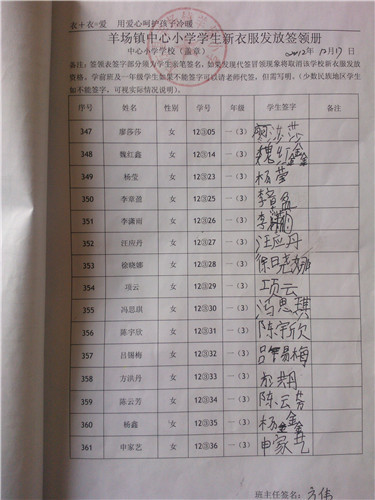 衣+衣=爱 用爱心呵护孩子冷暖
羊场镇中心小学学生新衣服发放签领册
中心小学学校（盖章） 2012年12月17日
备注：签领表签字部分须为学生亲笔签名，如果发现代签冒领现象将取消该学校新衣服发放
资格，学前班及一年级学生如果不能签字可以请老师代签，但需写明。（少数民族地区学生如
不能签字，可视实际情况说明）。
序号 姓名 性别 学号 年级 学生签字 备注
347 廖莎莎 女 12③05 一（3） 廖莎莎
348 魏红鑫 女 12③14 一（3） 魏红鑫
349 杨莹 女 12③23 一（3） 杨莹
350 李章盈 女 12③25 一（3） 李章盈
351 李潇雨 女 12③26 一（3） 李潇雨
352 汪应丹 女 12③27 一（3） 汪应丹
353 徐晓娜 女 12③28 一（3） 徐晓娜
354 项云 女 12③29 一（3） 项云
355 冯思琪 女 12③30 一（3） 冯思琪
356 陈宇欣 女 12③31 一（3） 陈宇欣
357 吕锡梅 女 12③32 一（3） 吕锡梅
358 方洪丹 女 12③33 一（3）
359 陈云芳 女 12③34 一（3） 陈云芳
360 杨鑫 女 12③35 一（3） 杨鑫
361 申家艺 女 12③36 一（3） 申家艺
班主任签名：方伟